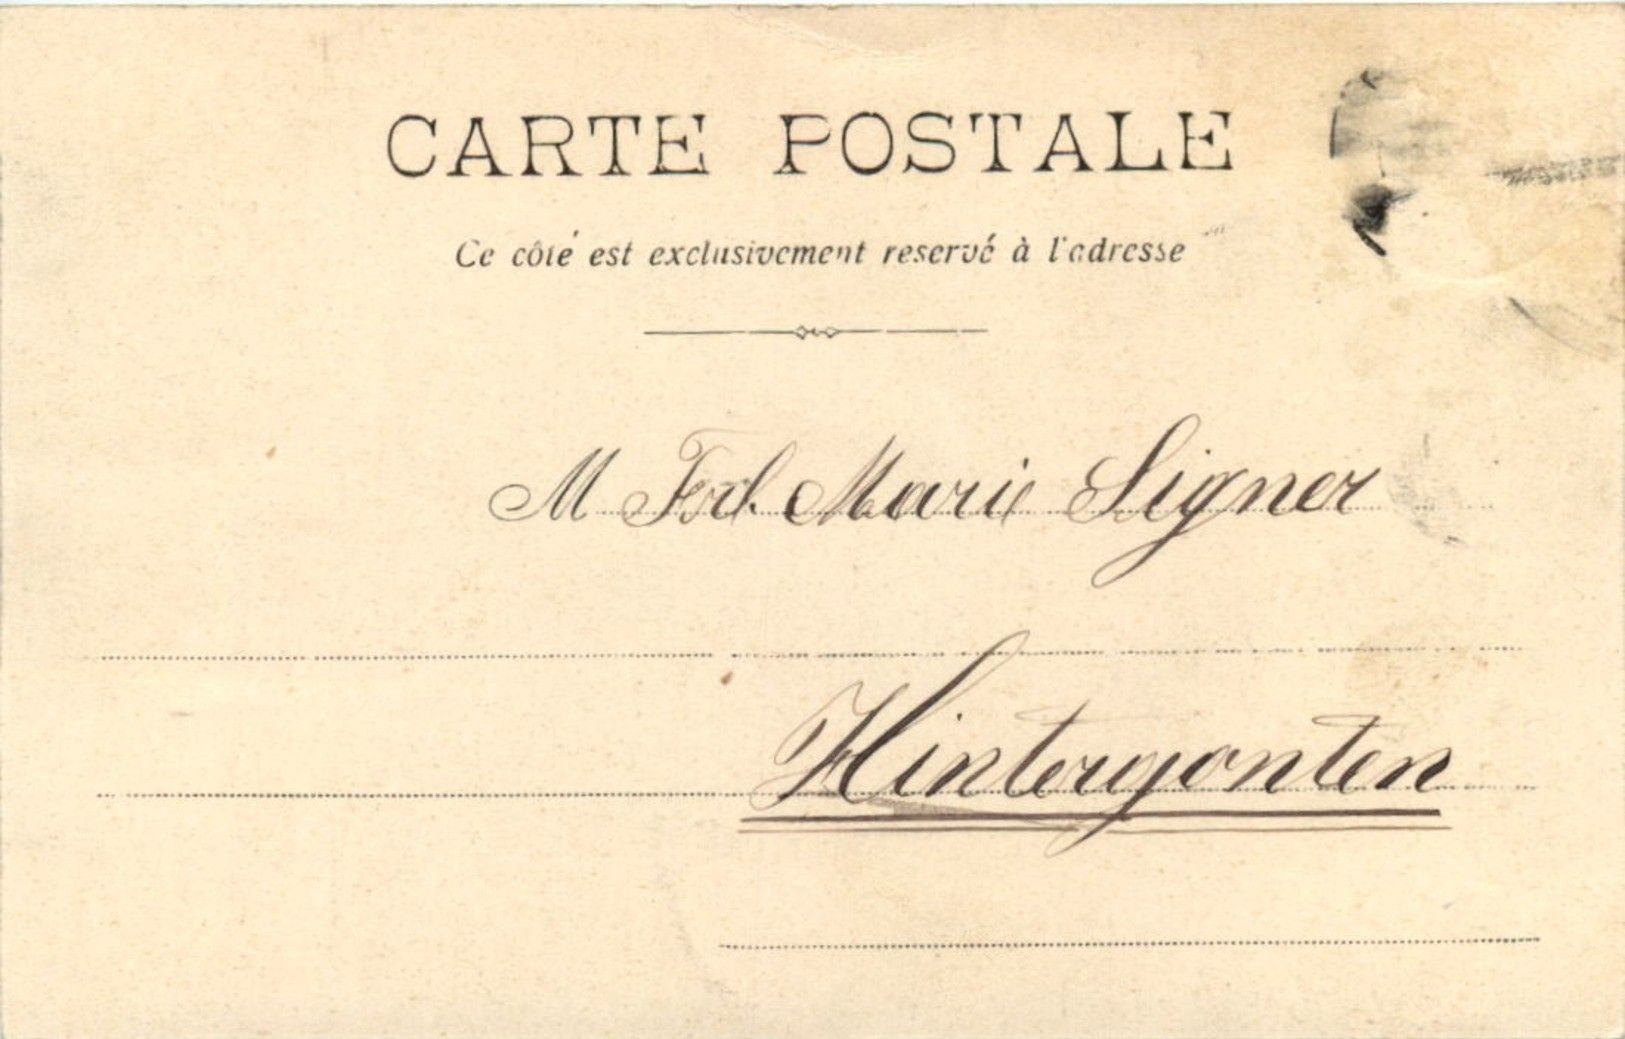 CARTE POSTALE
Ce côté est exclusivement reservé à l'adresse
M Frl. Marie Signer
Hintergonten